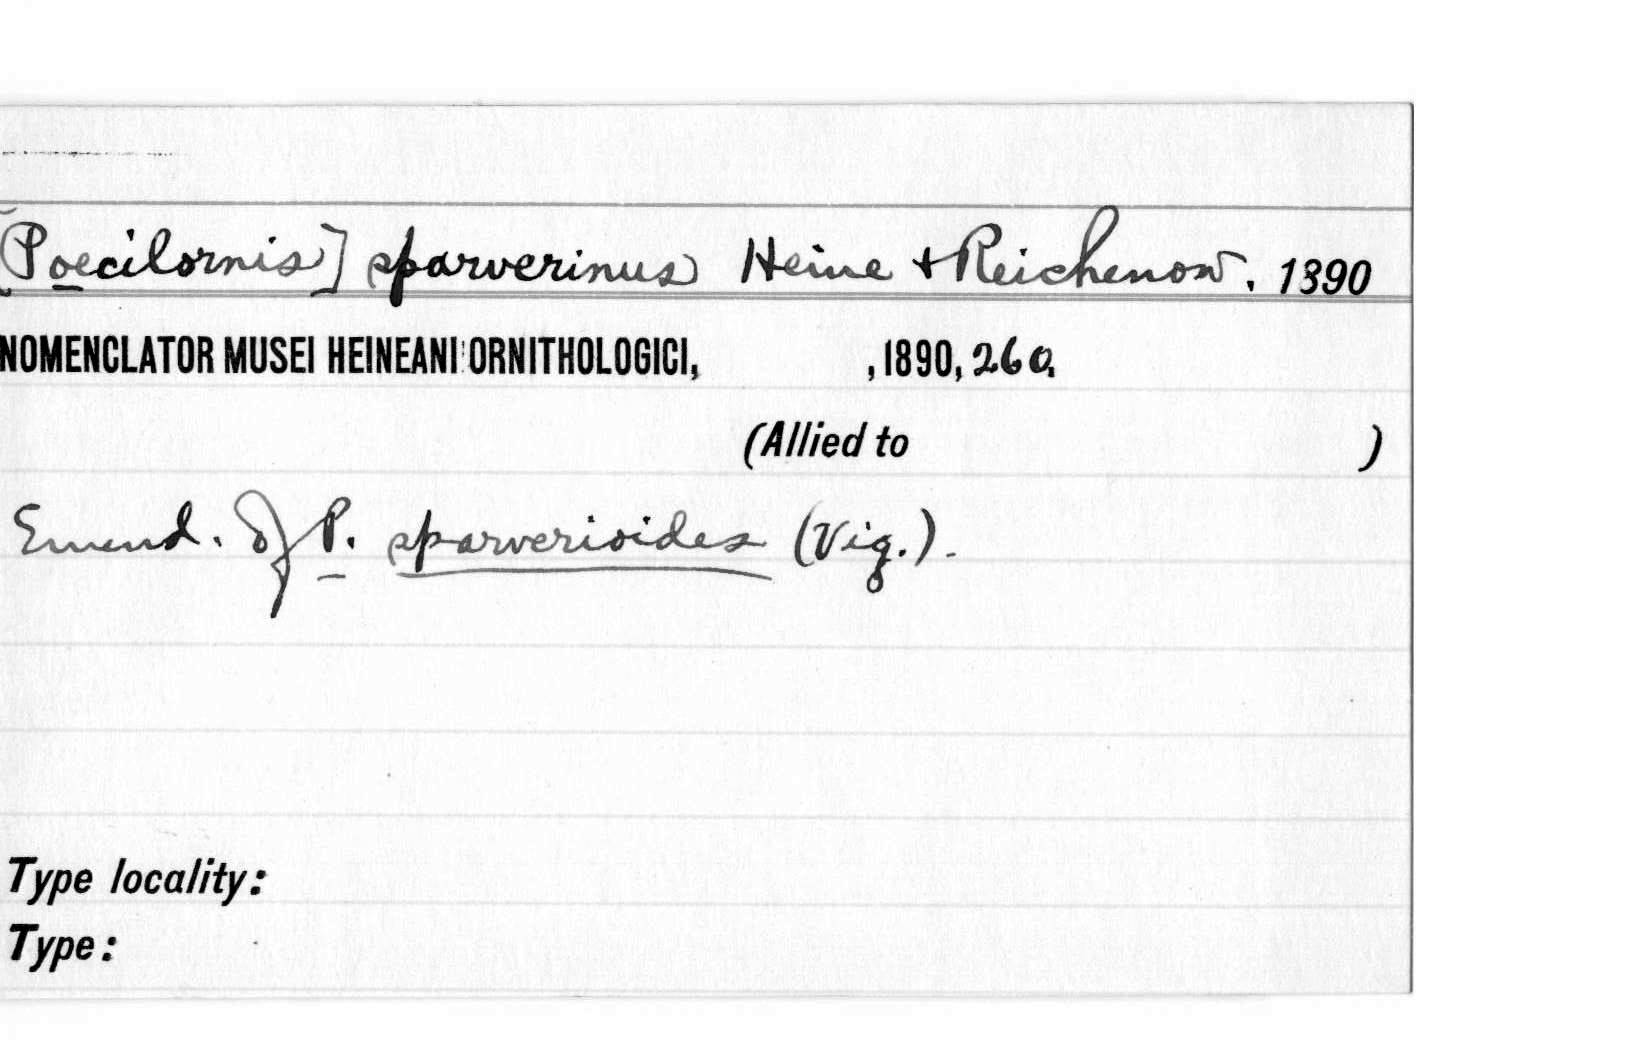 [Poecilornis] sparverinus Heine + Reichenow. 1390
NOMENCLATOR MUSEI HEINEANI ORNITHOLOGICI, , 1890, 260.
(Allied to )
Emend. of P. sparverioides (Vig.).
Type locality:
Type: